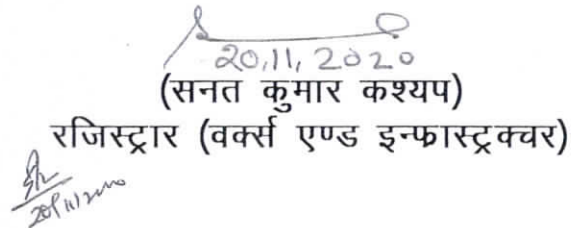 20,11,2020
(सनत कुमार कश्यप)
रजिस्ट्रार (वर्क्स एण्ड इन्फ्रास्ट्रक्चर)